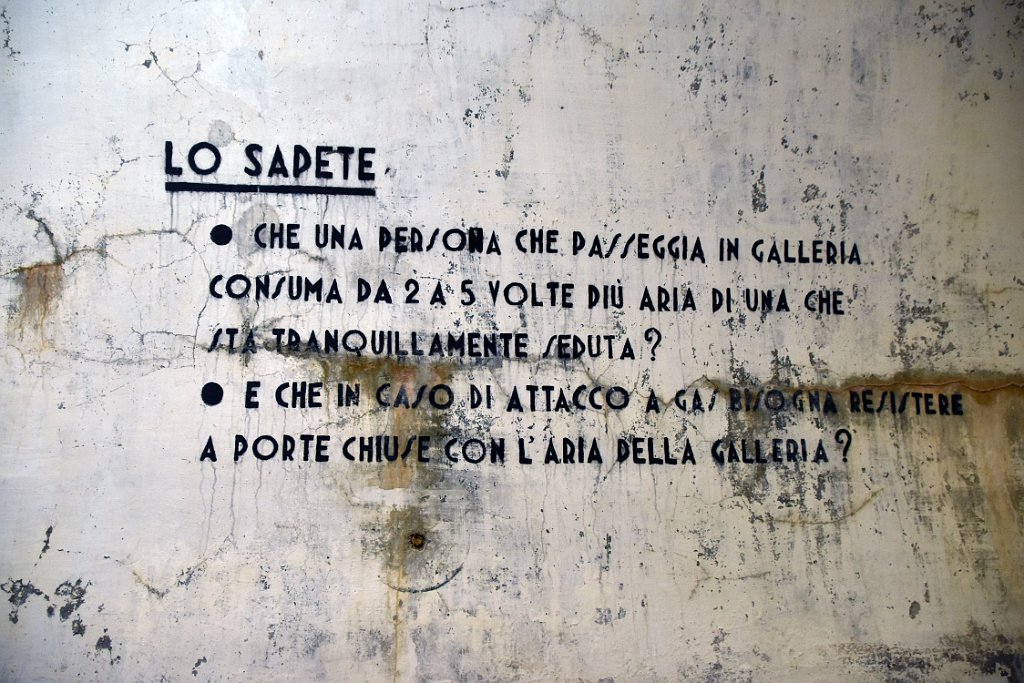 LO SAPETE
● CHE UNA PERSONA CHE PASSEGGIA IN GALLERIA
CONSUMA DA 2 A 5 VOLTE PIÙ ARIA DI UNA CHE
STA TRANQUILLAMENTE SEDUTA?
● E CHE IN CASO DI ATTACCO A GAS BISOGNA RESISTERE
A PORTE CHIUSE CON L'ARIA DELLA GALLERIA?